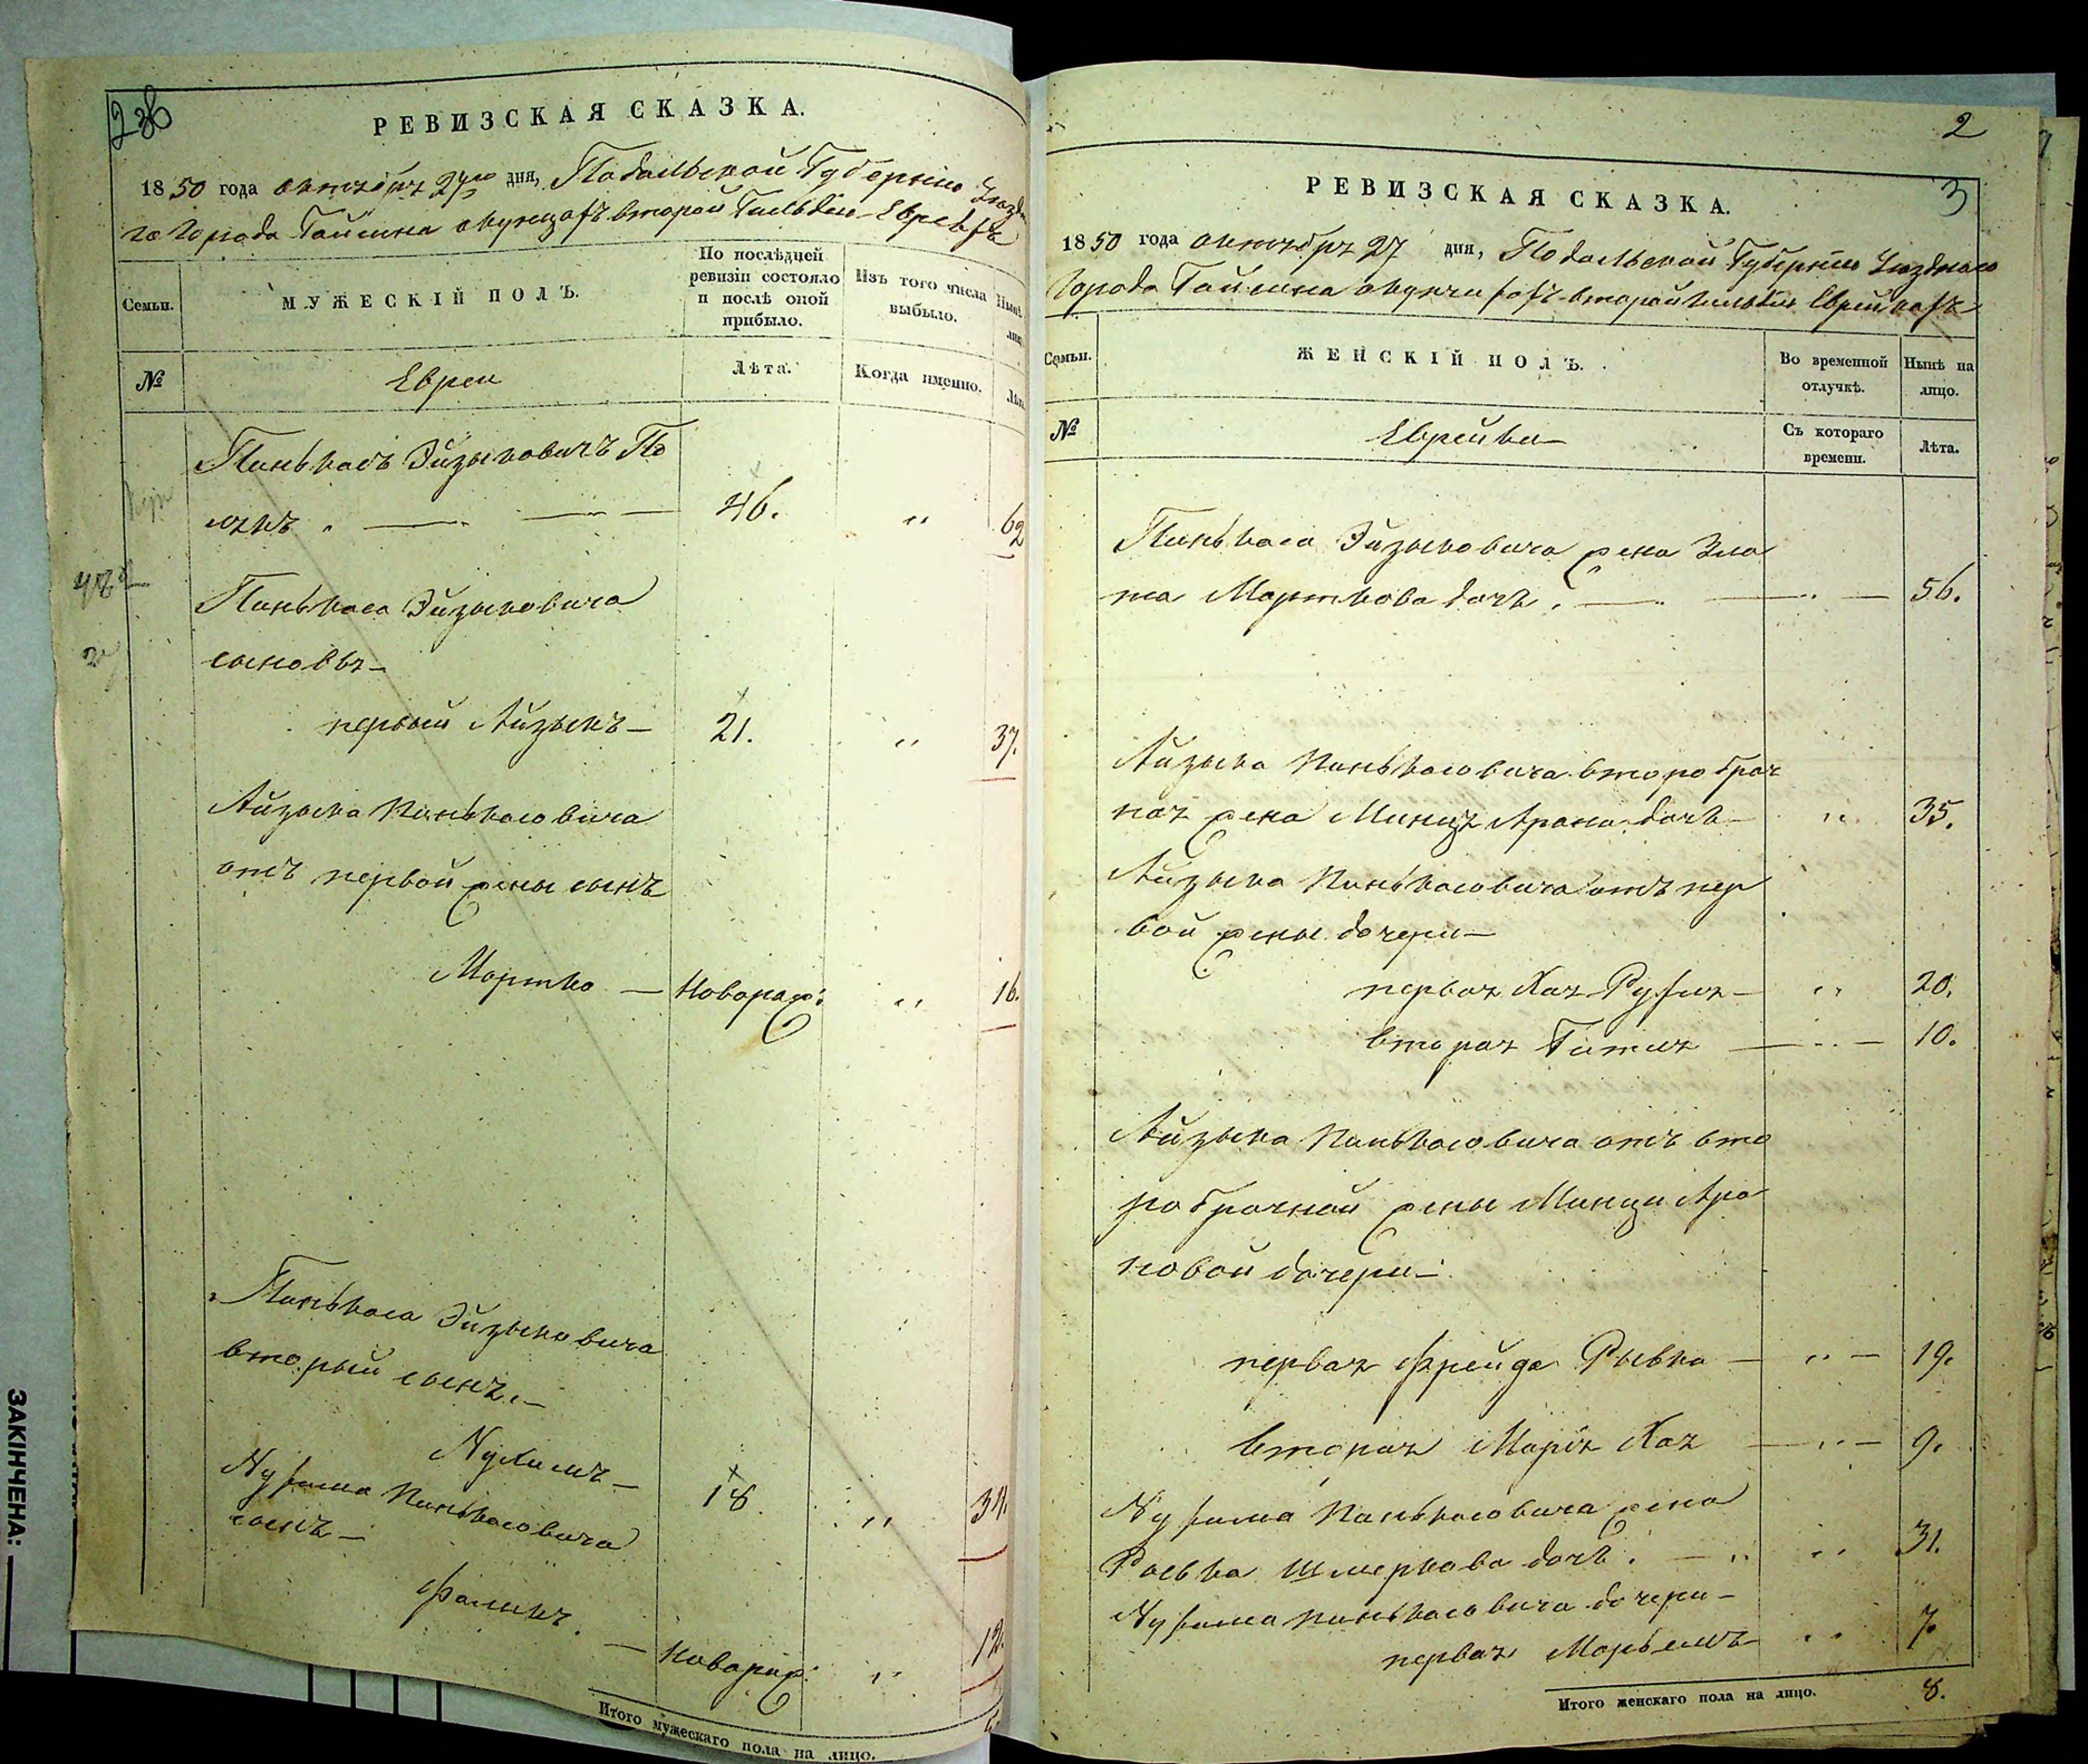 238
РЕВИЗСКАЯ СКАЗКА.
1850 года октября 27го дня, Подольской Губернiи Уезд
го Города Гайсина о купцахъ второй Гильдiи Евреяхъ
Семьи.
МУЖЕСКІЙ ПОЛЪ.
По послѣдней ревизіи состояло и послѣ оной прибыло.
Изъ того числа выбыло.
Нынѣ
лиц
№
Евреи
Лѣта.
Когда именно.
Лѣт
Пиньхасъ Эйзыковичъ По
46. " 62
Пинькаса Эйзыковича
сыновья
первый Айзыкъ — 21. " 37.
Айзыка Пинькасовича
отъ первой жены сынъ
Мортко — Новорож: " 16.
Пинькаса Эйзыковича
вторый сынъ —
Нухимъ — 18 " 34.
Нухима Пинькасовича
сынъ —
— Новорож: " 12.
Итого мужескаго пола на лицо.
2
3
РЕВИЗСКАЯ СКАЗКА.
1850 года октября 27 дня, Подольской Губернiи Уезднаго
Города Гайсина о купчихахъ второй гильдiи Еврейкахъ
Семьи.
ЖЕНСКІЙ ПОЛЪ.
Во временной отлучкѣ.
Нынѣ на лицо.
№
Еврейки
Съ котораго времени.
Лѣта.
Пинькаса Эйзыковича жена Зла
та Морткова дочь. — 56.
Айзыка Пинькасовича второбрач
ная жена Минця Арона дочь — " 35.
Айзыка Пинькасовича отъ пер
вой жены дочери —
первая Хая Рухля — " 20.
вторая Гитля — " — 10.
Айзыка Пинькасовича отъ вто
робрачной жены Минци Аро
новой дочери —
первая Фрейда Рывка — " — 19.
вторая Марiя Хая — " — 9.
Нухима Пинькасовича жена
Роська Шмеркова дочь. — " " 31.
Нухима Пинькасовича дочери —
первая Марьямъ " 7.
Итого женскаго пола на лицо. 8.
ЗАКІНЧЕНА: